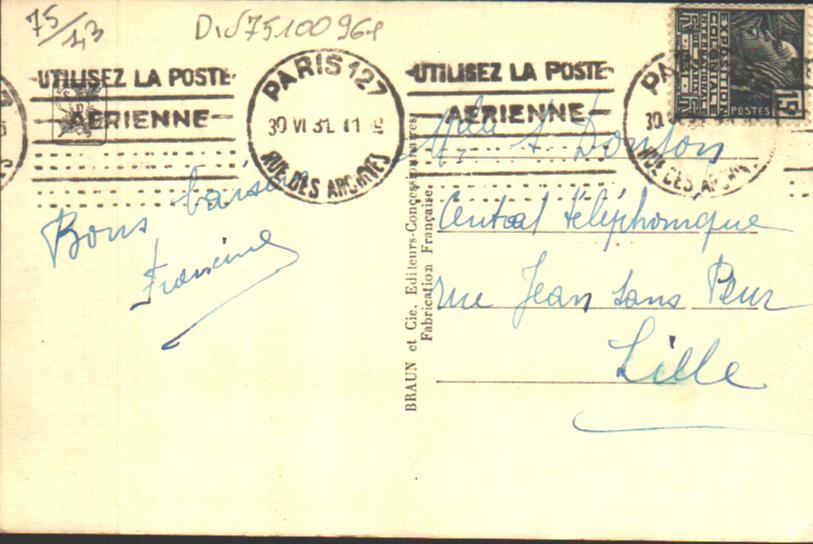 75/13
UTILISEZ LA POSTE
AERIENNE
PARIS 127
30 VI 31
RUE DES ARCHIVES
UTILISEZ LA POSTE
AERIENNE
EXPOSITION
COLONIALE
INTERNATIONALE
PARIS
POSTES
15c
30
RUE DES ARCHIV
Bons baisers
Francine
BRAUN et Cie, Editeurs-Concessionnaires
Fabrication Française.
Central téléphonique
rue Jean sans Peur
Lille